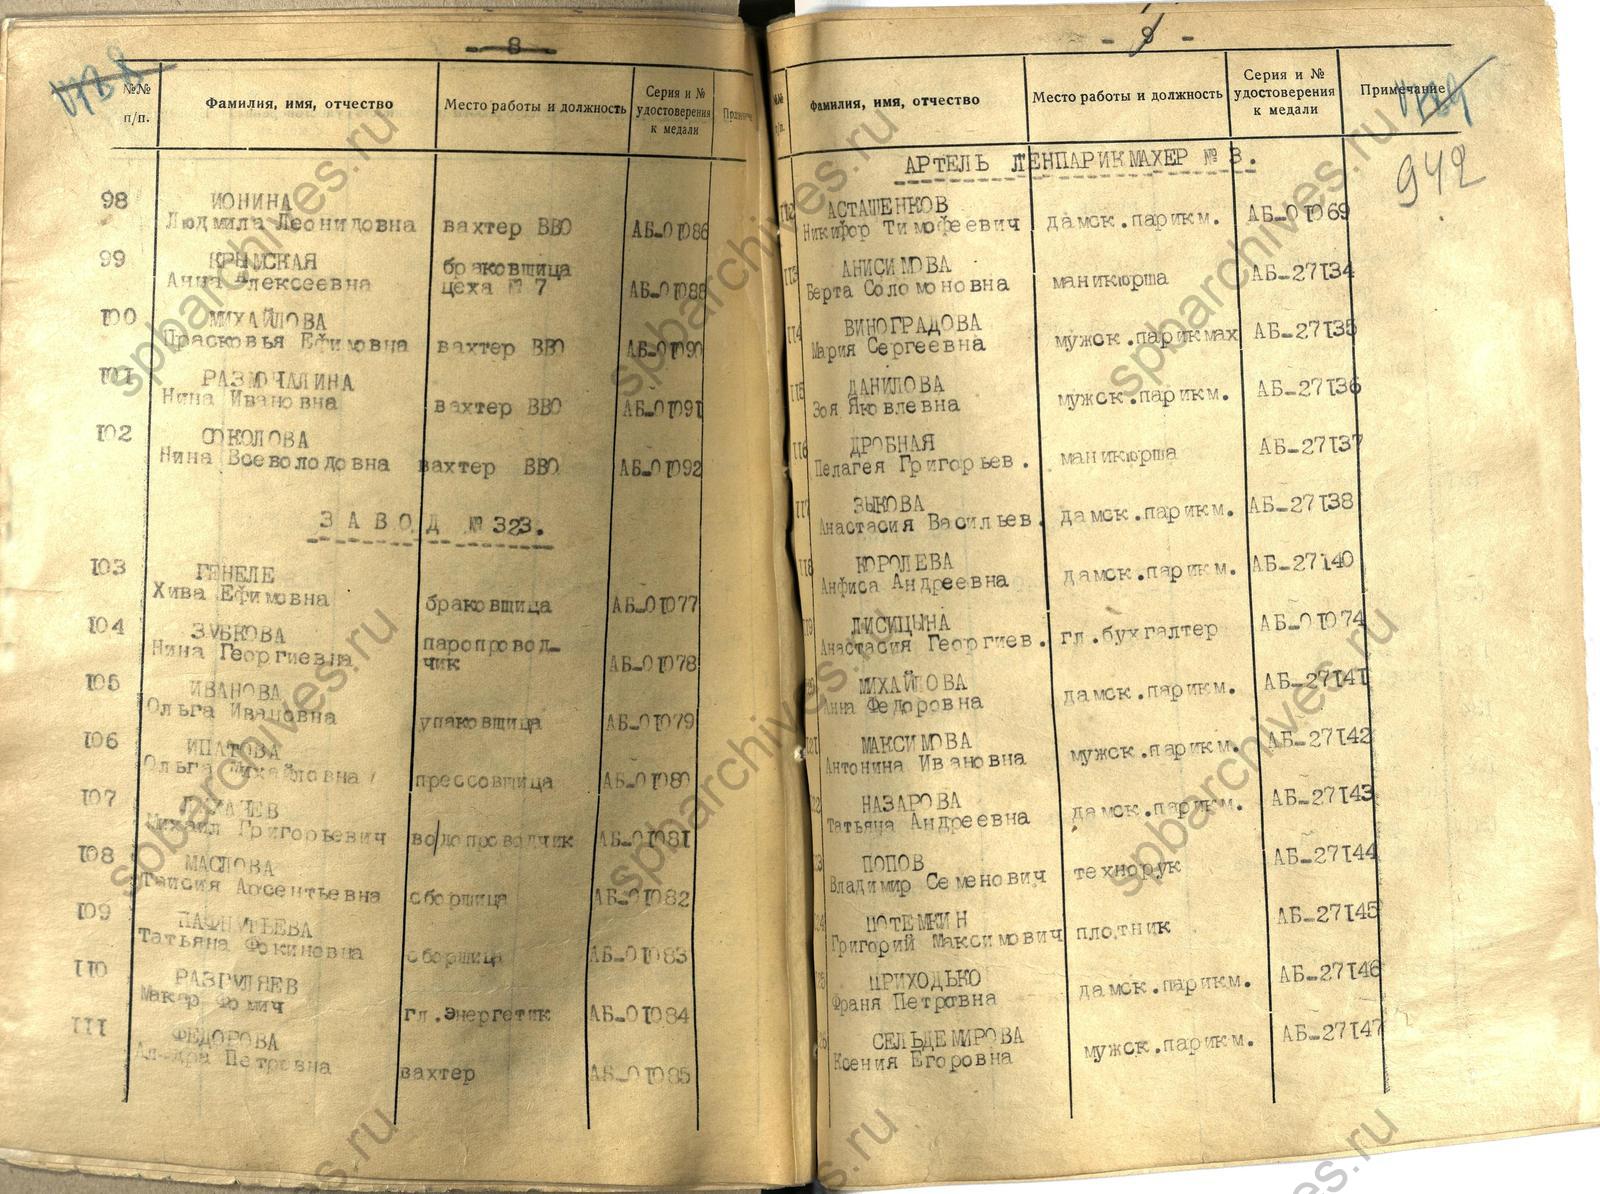 - 8 -
№№ п/п.
Фамилия, имя, отчество
Место работы и должность
Серия и № удостоверения к медали
98 ИОНИНА
Людмила Леонидовна вахтер ВВО АБ-01086
99 КРЫМСКАЯ браковщица
Анна Алексеевна цеха № 7 АБ-01088
100 МИХАЙЛОВА
Прасковья Ефимовна вахтер ВВО АБ-01090
101 РАЗМОЧАЛИНА
Нина Ивановна вахтер ВВО АБ-01091
102 СОКОЛОВА
Нина Всеволодовна вахтер ВВО АБ-01092
ЗАВОД № 323.
103 ГЕНЕЛЕ
Хива Ефимовна браковщица АБ-01077
104 ЗУБКОВА паропровод-
Нина Георгиевна чик АБ-01078
105 ИВАНОВА
Ольга Ивановна упаковщица АБ-01079
106 ИПАТОВА
Ольга Михайловна прессовщица АБ-01080
107
Михаил Григорьевич водопроводчик АБ-01081
108 МАСЛОВА
Таисия Арсентьевна сборщица АБ-01082
109 ПАФНУТЬЕВА
Татьяна Фокиневна сборщица АБ-01083
110 РАЗГУЛЯЕВ
Макар Фомич гл.энергетик АБ-01084
111 ФЕДОРОВА
Ал-дра Петровна вахтер АБ-01085
- 9 -
Фамилия, имя, отчество
Место работы и должность
Серия и № удостоверения к медали
Примечание
942
АРТЕЛЬ ЛЕНПАРИКМАХЕР № 3.
112 АСТАШЕНКОВ
Никифор Тимофеевич дамск.парикм. АБ-01069
113 АНИСИМОВА
Берта Соломоновна маникюрша АБ-27134
114 ВИНОГРАДОВА
Мария Сергеевна мужск.парикмах АБ-27135
115 ДАНИЛОВА
Зоя Яковлевна мужск.парикм. АБ-27136
116 ДРОБНАЯ
Пелагея Григорьев. маникюрша АБ-27137
117 ЗЫКОВА
Анастасия Васильев. дамск.парикм. АБ-27138
118 КОРОЛЕВА
Анфиса Андреевна дамск.парикм. АБ-27140
119 ЛИСИЦЫНА
Анастасия Георгиев. гл.бухгалтер АБ-01074
120 МИХАЙЛОВА
Анна Федоровна дамск.парикм. АБ-27141
121 МАКСИМОВА
Антонина Ивановна мужск.парикм. АБ-27142
122 НАЗАРОВА
Татьяна Андреевна дамск.парикм. АБ-27143
123 ПОПОВ
Владимир Семенович технорук АБ-27144
124 ПОТЕМКИН
Григорий Максимович плотник АБ-27145
125 ПРИХОДЬКО
Франя Петровна дамск.парикм. АБ-27146
126 СЕЛЬДЕМИРОВА
Ксения Егоровна мужск.парикм. АБ-27147
spbarchives.ru